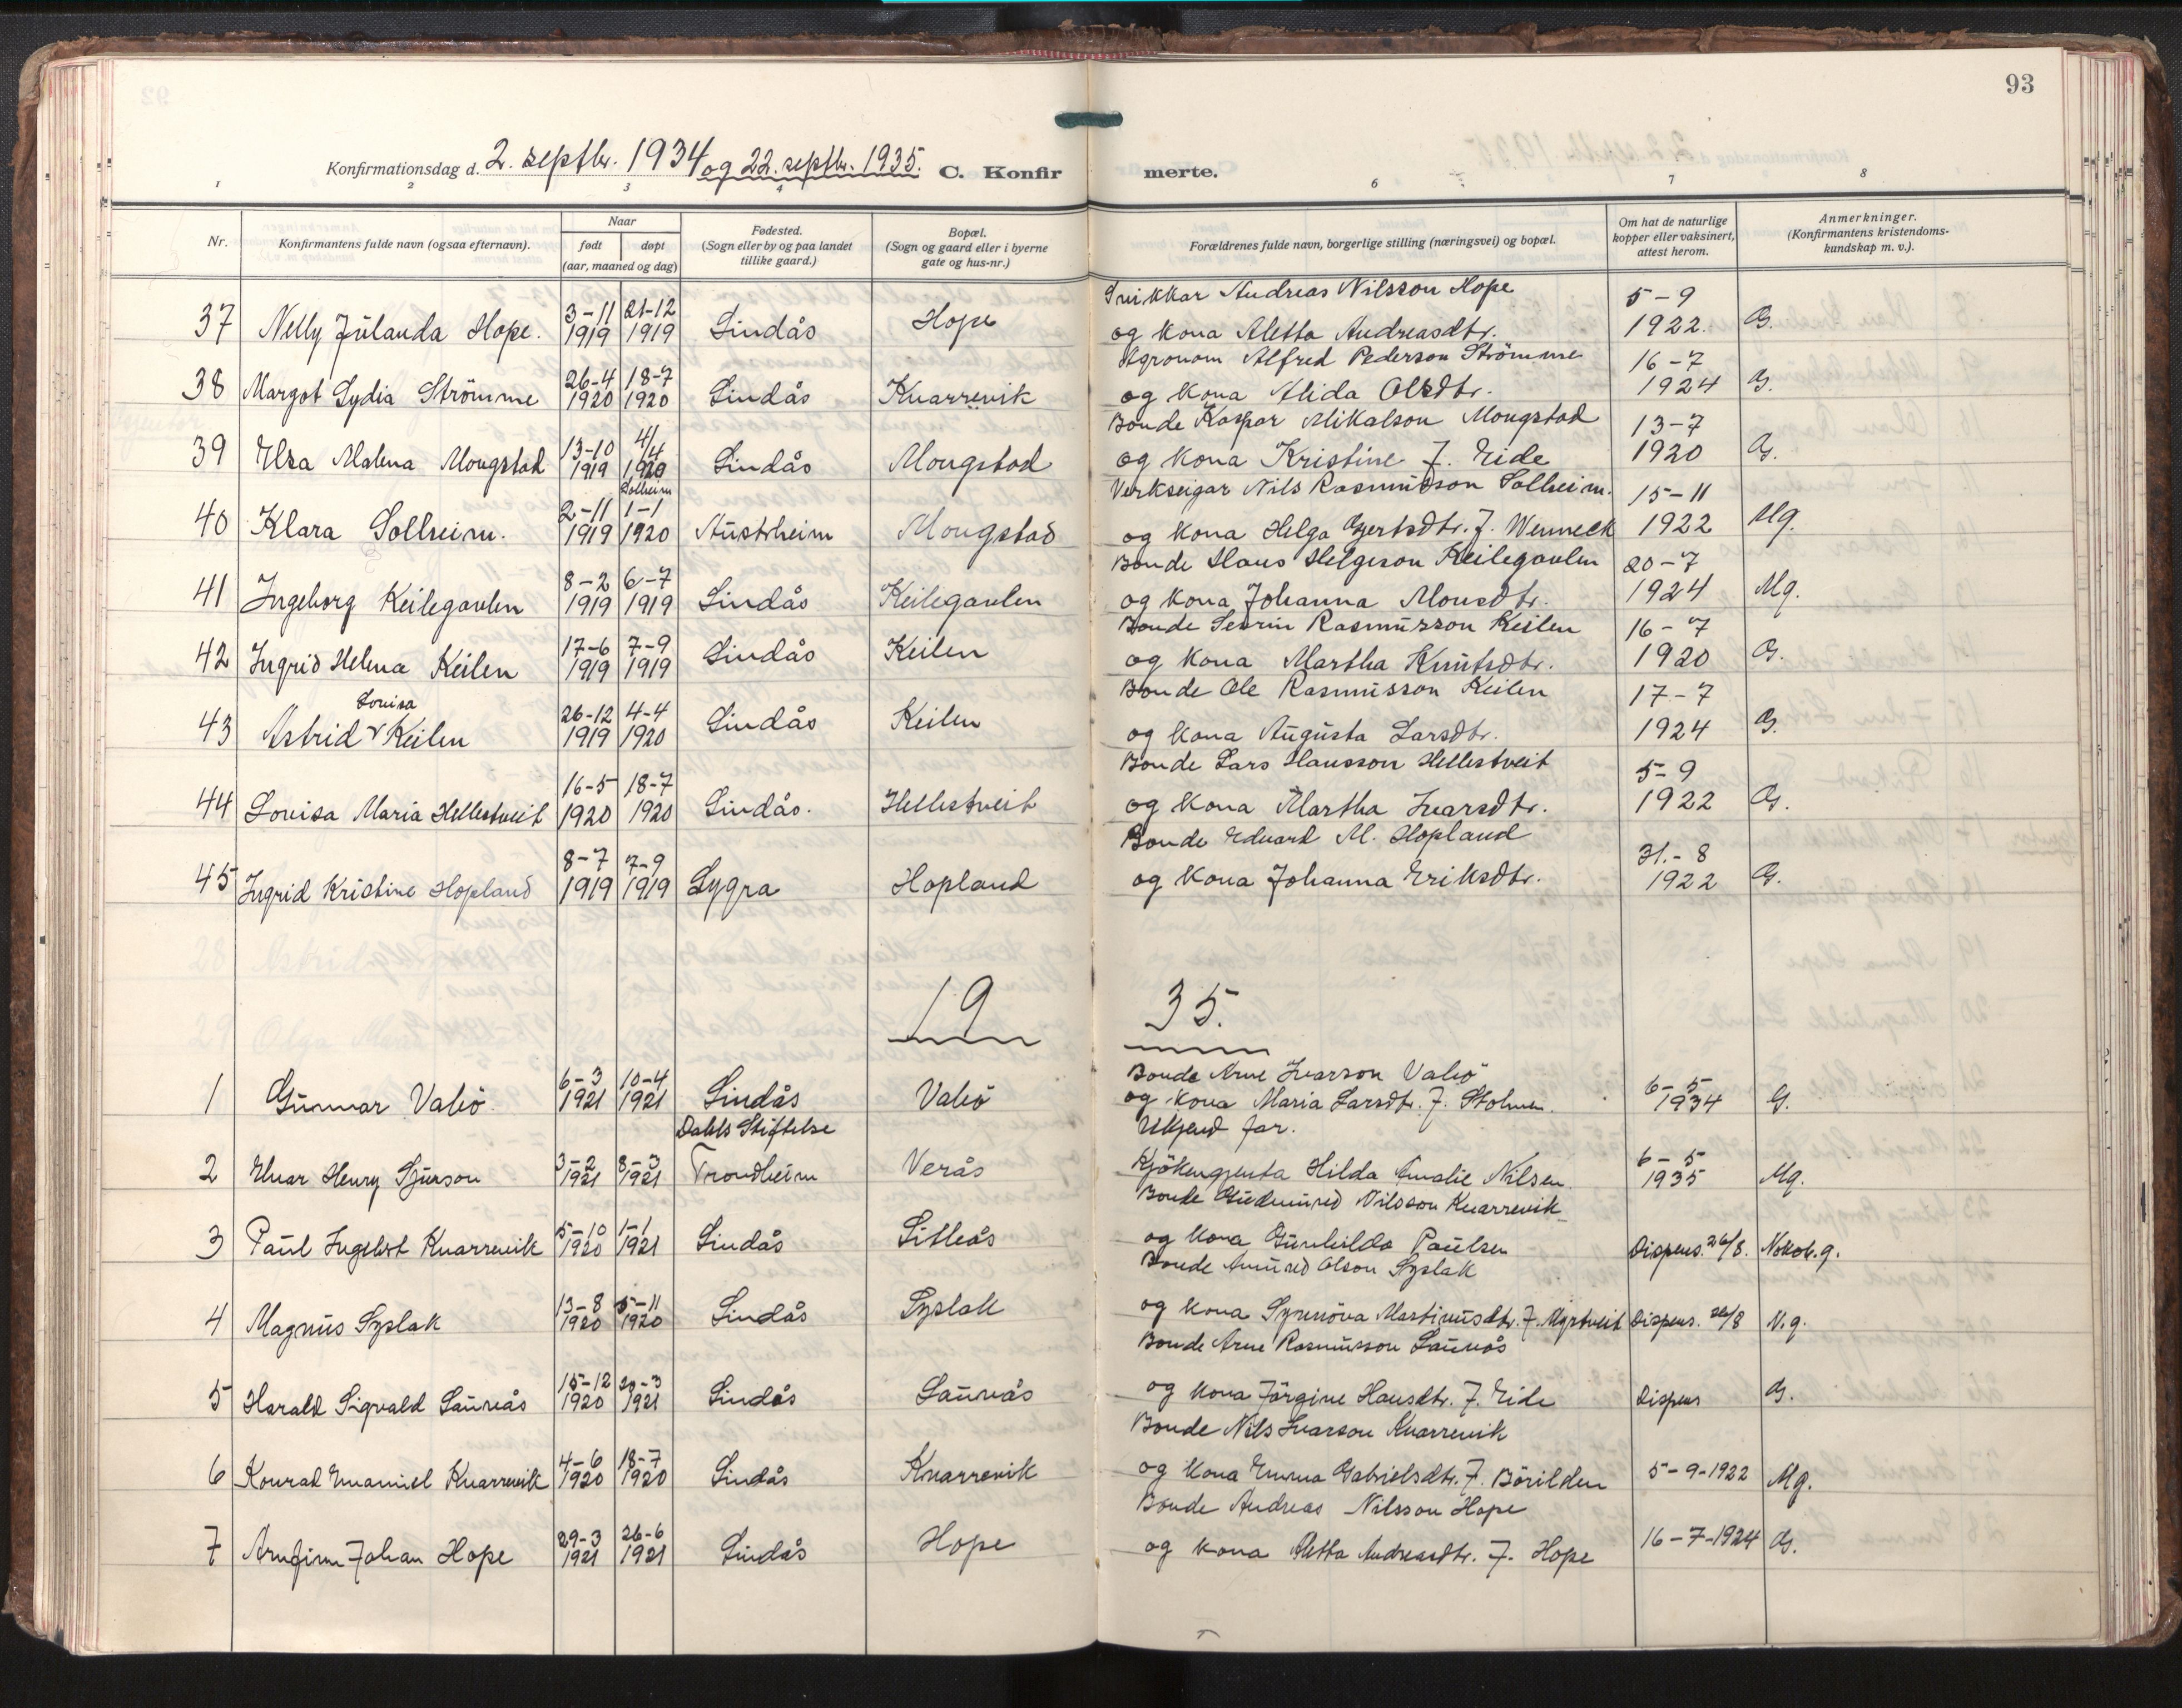 93
Konfirmationsdag d. 2. septbr. 1934 og 22. septbr. 1935. C. Konfirmerte.
1 2 3 4 5 6 7 8
Nr. | Konfirmantens fulde navn (ogsaa efternavn). | Naar født døpt (aar, maaned og dag) | Fødested. (Sogn eller by og paa landet tillike gaard.) | Bopæl. (Sogn og gaard eller i byerne gate og hus-nr.) | Forældrenes fulde navn, borgerlige stilling (næringsvei) og bopæl. | Om hat de naturlige kopper eller vaksinert, attest herom. | Anmerkninger. (Konfirmantens kristendomskundskap m. v.).
37 Nelly Julanda Hope. 3-11 1919 21-12 1919 Lindås Hope Snikkar Andreas Nilsson Hope og kona Aletta Andreasdtr. 5-9 1922. G.
38 Margot Lydia Strömme 26-4 1920 18-7 1920 Lindås Knarrevik Agronom Alfred Pederson Strömme og kona Alida Olsdtr. 16-7 1924 G.
39 Elsa Malena Mongstad 13-10 1919 4/4 1920 Lindås Mongstad Bonde Kaspar Mikalson Mongstad og kona Kristine f. Eide 13-7 1920 G.
40 Klara Sollheim. 2-11 1919 Solheim 1-1 1920 Austrheim Mongstad Verkseigar Nils Rasmusson Sollheim. og kona Helga Gjertsdtr. f. Wenneck 15-11 1922 Mg.
41 Ingeborg Keilegavlen 8-2 1919 6-7 1919 Lindås Keilegavlen Bonde Hans Helgeson Keilegavlen og kona Johanna Monsdtr. 20-7 1924 Mg.
42 Ingrid Helena Keilen 17-6 1919 7-9 1919 Lindås Keilen Bonde Sevrin Rasmusson Keilen og kona Martha Knutsdtr. 16-7 1920 G.
43 Astrid Lovisa Keilen 26-12 1919 4-4 1920 Lindås Keilen Bonde Ole Rasmusson Keilen og kona Augusta Larsdtr. 17-7 1924 G.
44 Lovisa Maria Hellestveit 16-5 1920 18-7 1920 Lindås. Hellestveit Bonde Lars Hansson Hellestveit og kona Martha Ivarsdtr. 5-9 1922 G.
45 Ingrid Kristine Hopland 8-7 1919 7-9 1919 Lygra Hopland Bonde Edvard M. Hopland og kona Johanna Eriksdtr. 31.-8 1922 G.
19 35.
1 Gunnar Valsö 6-3 1921 10-4 1921 Lindås Valsö Bonde Arne Ivarson Valsö og kona Maria Larsdtr. f. Stolmen. 6-5 1934 G.
2 Elvar Henry Sjurson 3-2 1921 8-3 1921 Dahls Stiftelse Trondheim Verås Ukjend far. Kjökengjenta Hilda Amalie Nilsen. 6-5 1935 Mg.
3 Paul Ingebrt Knarrevik 5-10 1920 1-1 1921 Lindås Sitleås Bonde Gudmund Nilsson Knarrevik og kona Gunhilda Paulsen Dispens. 26/8. Nokob. g.
4 Magnus Syslak 13-8 1920 5-11 1920 Lindås Syslak Bonde Amund Olson Syslak og kona Synnöva Martinusdtr. f. Myrtveit Dispens. 26/8 N.g.
5 Harald Sigvald Saurås 15-12 1920 20-3 1921 Lindås Saurås Bonde Arne Rasmusson Saurås og kona Jörgine Hansdtr. f. Eide Dispens G.
6 Konrad Emanuel Knarrevik 4-6 1920 18-7 1920 Lindås Knarrevik Bonde Nils Ivarson Knarrevik og kona Emma Gabrielsdtr. f. Börilden 5-9-1922 Mg.
7 Arnfinn Johan Hope 29-3 1921 26-6 1921 Lindås Hope Bonde Andreas Nilsson Hope og kona Aletta Andreasdtr. f. Hope 16-7-1924 G.